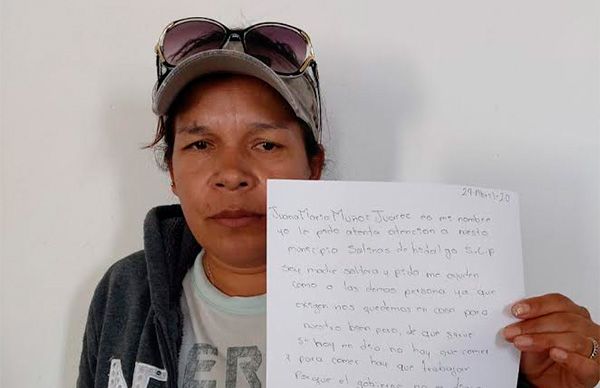 29-Abril-20
Juana Maria Muñoz Juarez es mi nombre
yo le pido atenta atencion a nuestro
municipio Salinas de hidalgo S.L.P
Soy madre soltera y pido me ayuden
como a las demas persona ya que
exigen nos quedemos en casa para
nuestro bien pero, de que sirve
si hoy en dia no hay que comer
y para comer hay que trabajar
Porque el gobierno no
ER